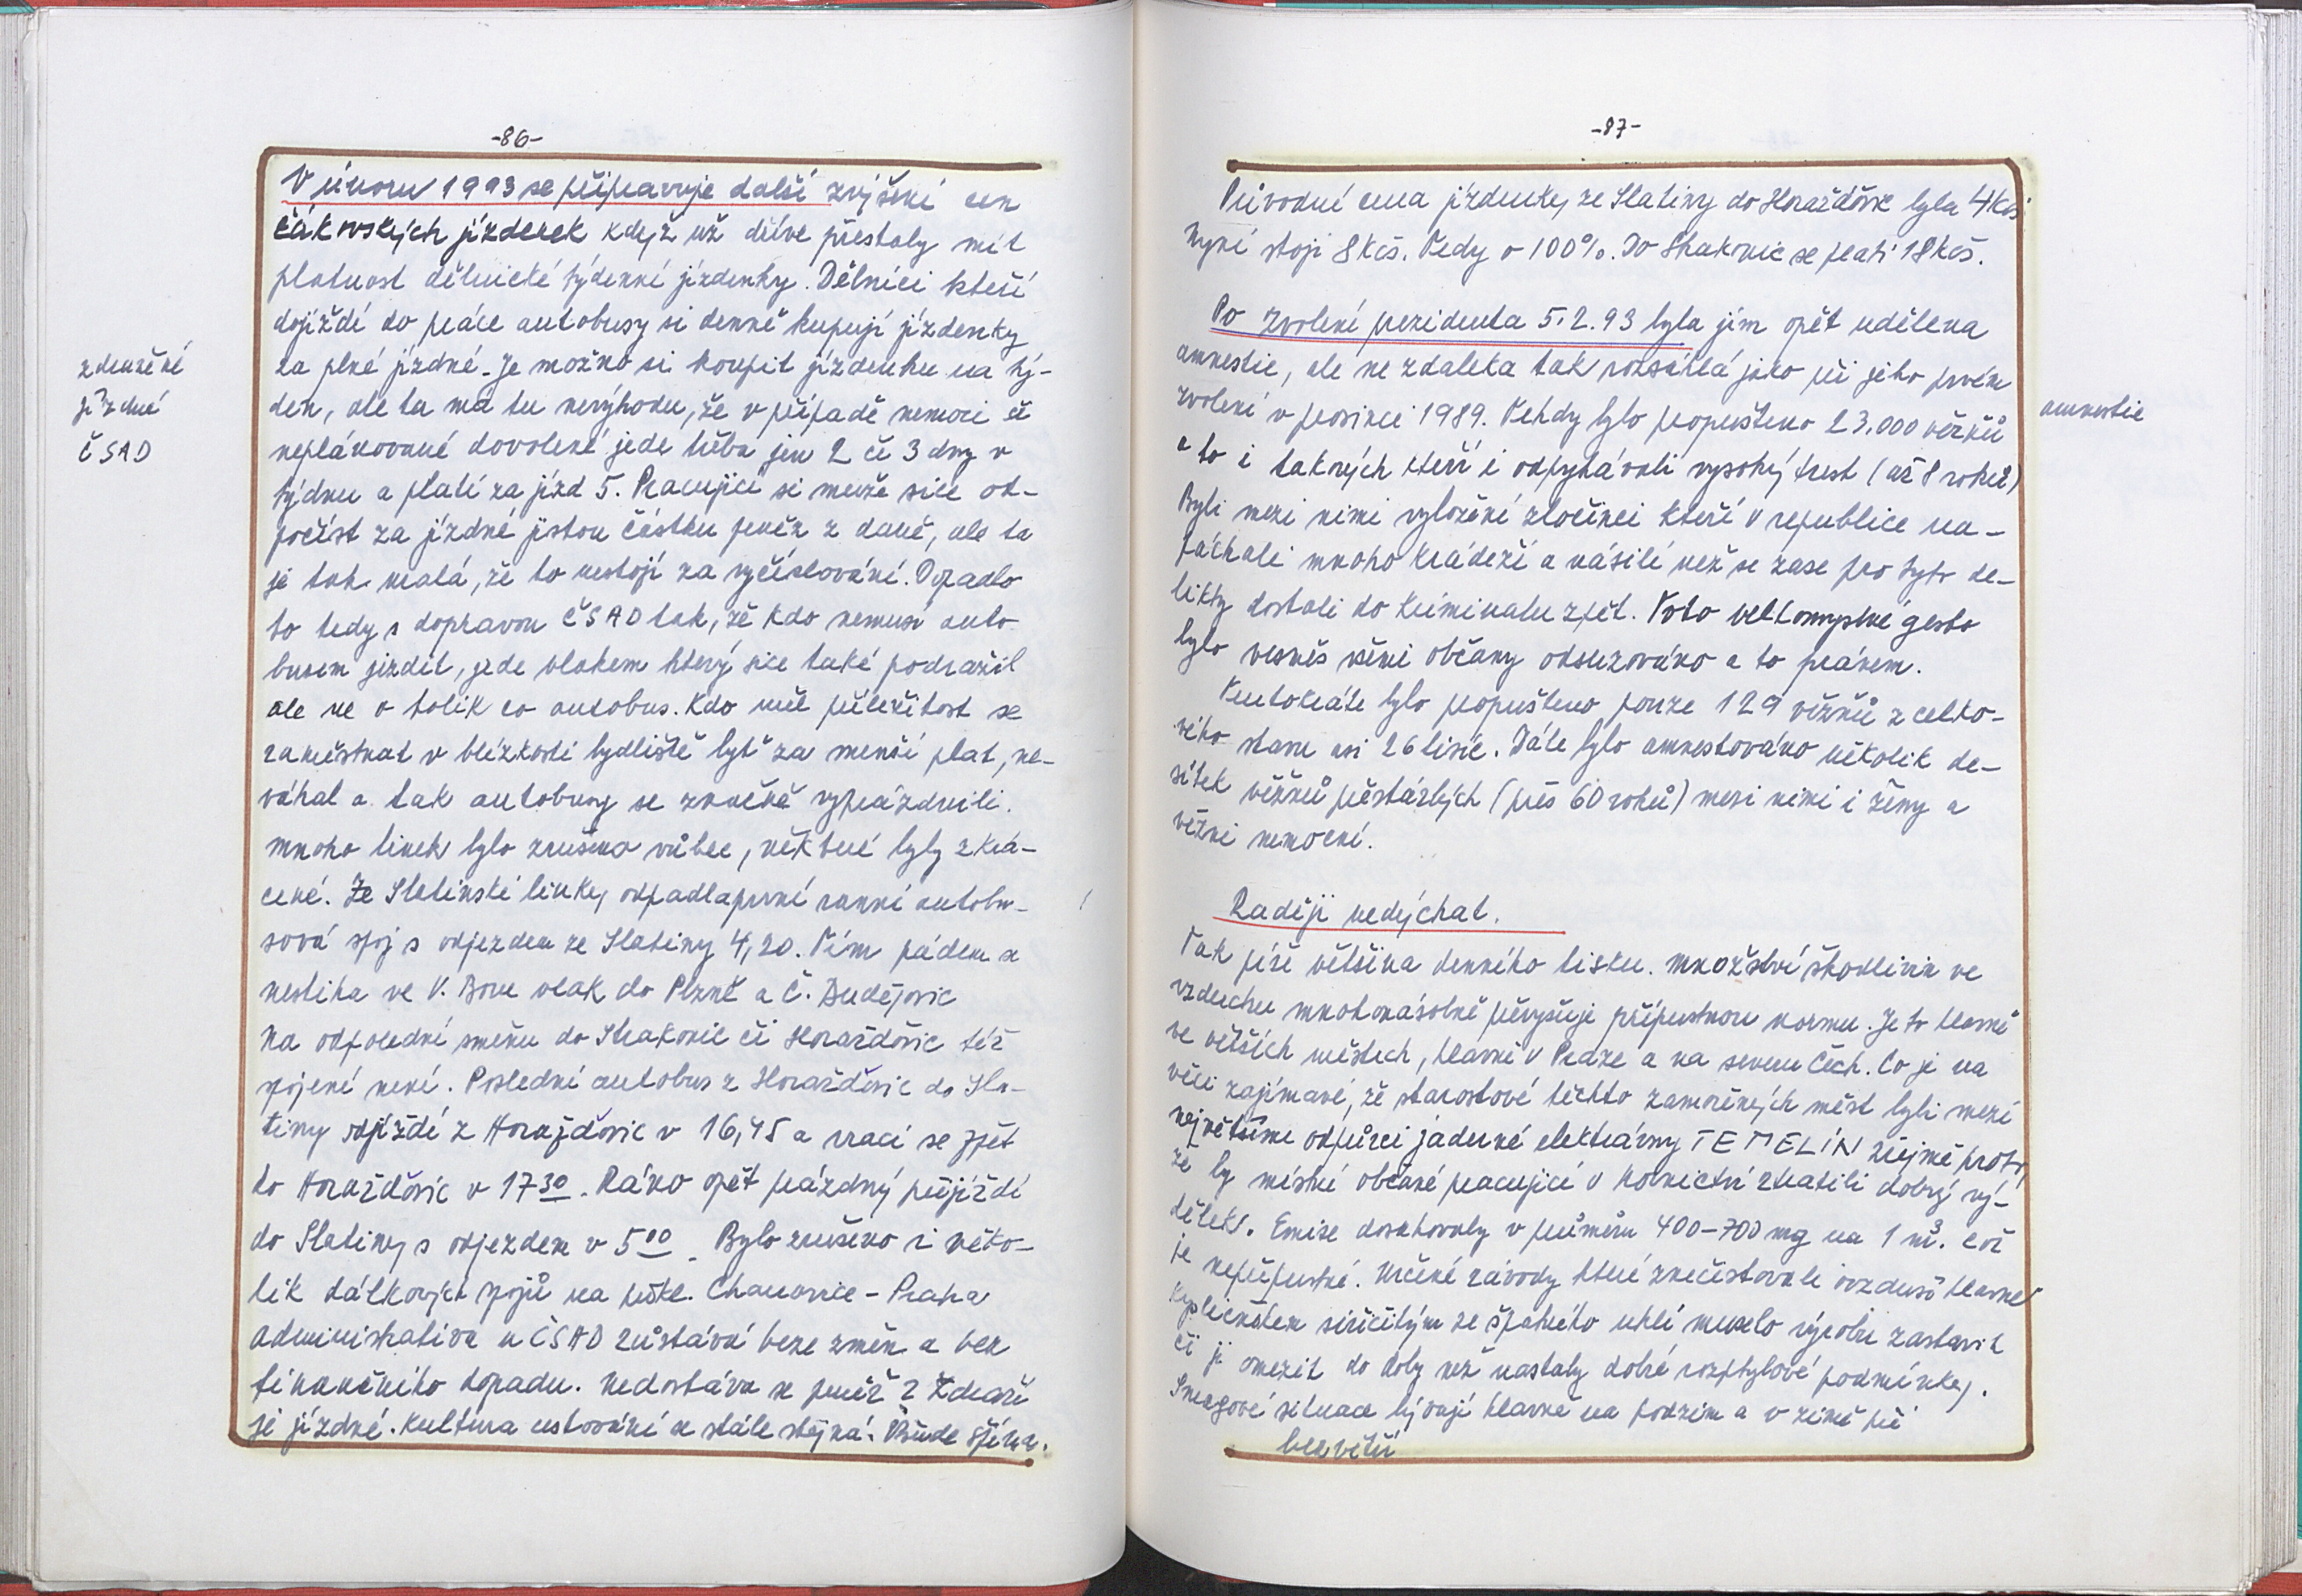 -86-
V únoru 1993 se připravuje další zvýšení cen
čákovských jízdenek když už dříve přestaly mít
platnost dělnické týdenní jízdenky. Dělníci kteří
dojíždí do práce autobusy si denně kupují jízdenky
za plné jízdné. Je možno si koupit jízdenku na tý-
den, ale ta má tu nevýhodu, že v případě nemoci či
neplánované dovolené jede třeba jen 2 či 3 dny v
týdnu a platí za jízd 5. Pracující si muže sice od-
počíst za jízdné jistou částku peněz z daně, ale ta
je tak malá, že to nestojí za vyčíslování. Dopadlo
to tedy s dopravou ČSAD tak, že kdo nemusí auto
busem jizdit, jede vlakem který sice také podražil
ale ne o tolik co autobus. Kdo měl příležitost se
zaměstnat v blízkosti bydliště byť za menší plat, ne-
váhal a tak autobusy se značně vyprázdnili.
mnoho linek bylo zrušeno vůbec, některé byly zkrá-
cené. Ze Slatinské linky odpadla první ranní autobu-
sová spoj s odjezdem ze Slatiny 4,20. Tím pádem se
nestiha ve V. Boru vlak do Plzně a Č. Budějovic
Na odpolední směnu do Strakonic či Horažďovic též
spojení není. Poslední autobus z Horažďovic do Sla-
tiny odjíždí z Horažďovic v 16,45 a vrací se zpět
do Horažďovic v 17 30. Ráno opět prázdný přijíždí
do Slatiny s odjezdem v 5 00. Bylo zrušeno i něko-
lik dálkových spojů na příkl. Chanovice - Praha
administrativa u ČSAD zůstává beze změn a bez
finančního dopadu. Nedostává se peněž? Zdraží
se jízdné. Kultura cestování je stále stejná. Všude špína.
zdražené
jízdné
ČSAD
-87-
Původní cena jízdenky ze Slatiny do Horažďovic byla 4 Kčs
Nyní stoji 8 Kčs. Tedy o 100%. Do Strakonic se platí 18 Kčs.
Po zvolení prezidenta 5.2.93 byla jím opět udělena
amnestie, ale ne zdaleka tak rozsáhlá jako při jeho prvém
zvolení v prosinci 1989. Tehdy bylo propuštěno 23.000 vězňů
a to i takových kteří i odpykávali vysoký trest (až 8 roků)
Byli mezi nimi vyložení zločinci kteří v republice na-
páchali mnoho krádeží a násilí než se zase pro tyto de-
likty dostali do kriminalu zpět. Toto velkomyslné gesto
bylo vesměs všemi občany odsuzováno a to právem.
Tentokráte bylo propuštěno pouze 129 vězňů z celko-
vého stavu asi 26 tisíc. Dále bylo amnestováno několik de-
sítek vězňů přestárlých (přes 60 roků) mezi nimi i ženy a
vězni nemocní.
amnestie
Raději nedýchat.
Tak píše většina denního tisku. množství škodlivin ve
vzduchu mnohonásobně převyšuje přípustnou normu. Je to hlavně
ve větších městech, hlavně v Praze a na severu Čech. Co je na
věci zajímavé, že starostové těchto zamořených měst byli mezi
největšími odpůrci jaderné elektrárny TEMELÍN zřejmě proto,
že by místní občané pracující v hornictví ztratili dobrý vý-
dělek. Emise dosahovaly v průměru 400-700 mg na 1 m³. což
je nepřípustné. Určené závody které znečistovali ovzduší hlavně
kysličníkem siřičitým ze špatného uhlí muselo výrobu zastavit
či ji omezit do doby než nastaly dobré rozptylové podmínky.
Smogové situace bývají hlavně na podzim a v zimě při
bezvětří